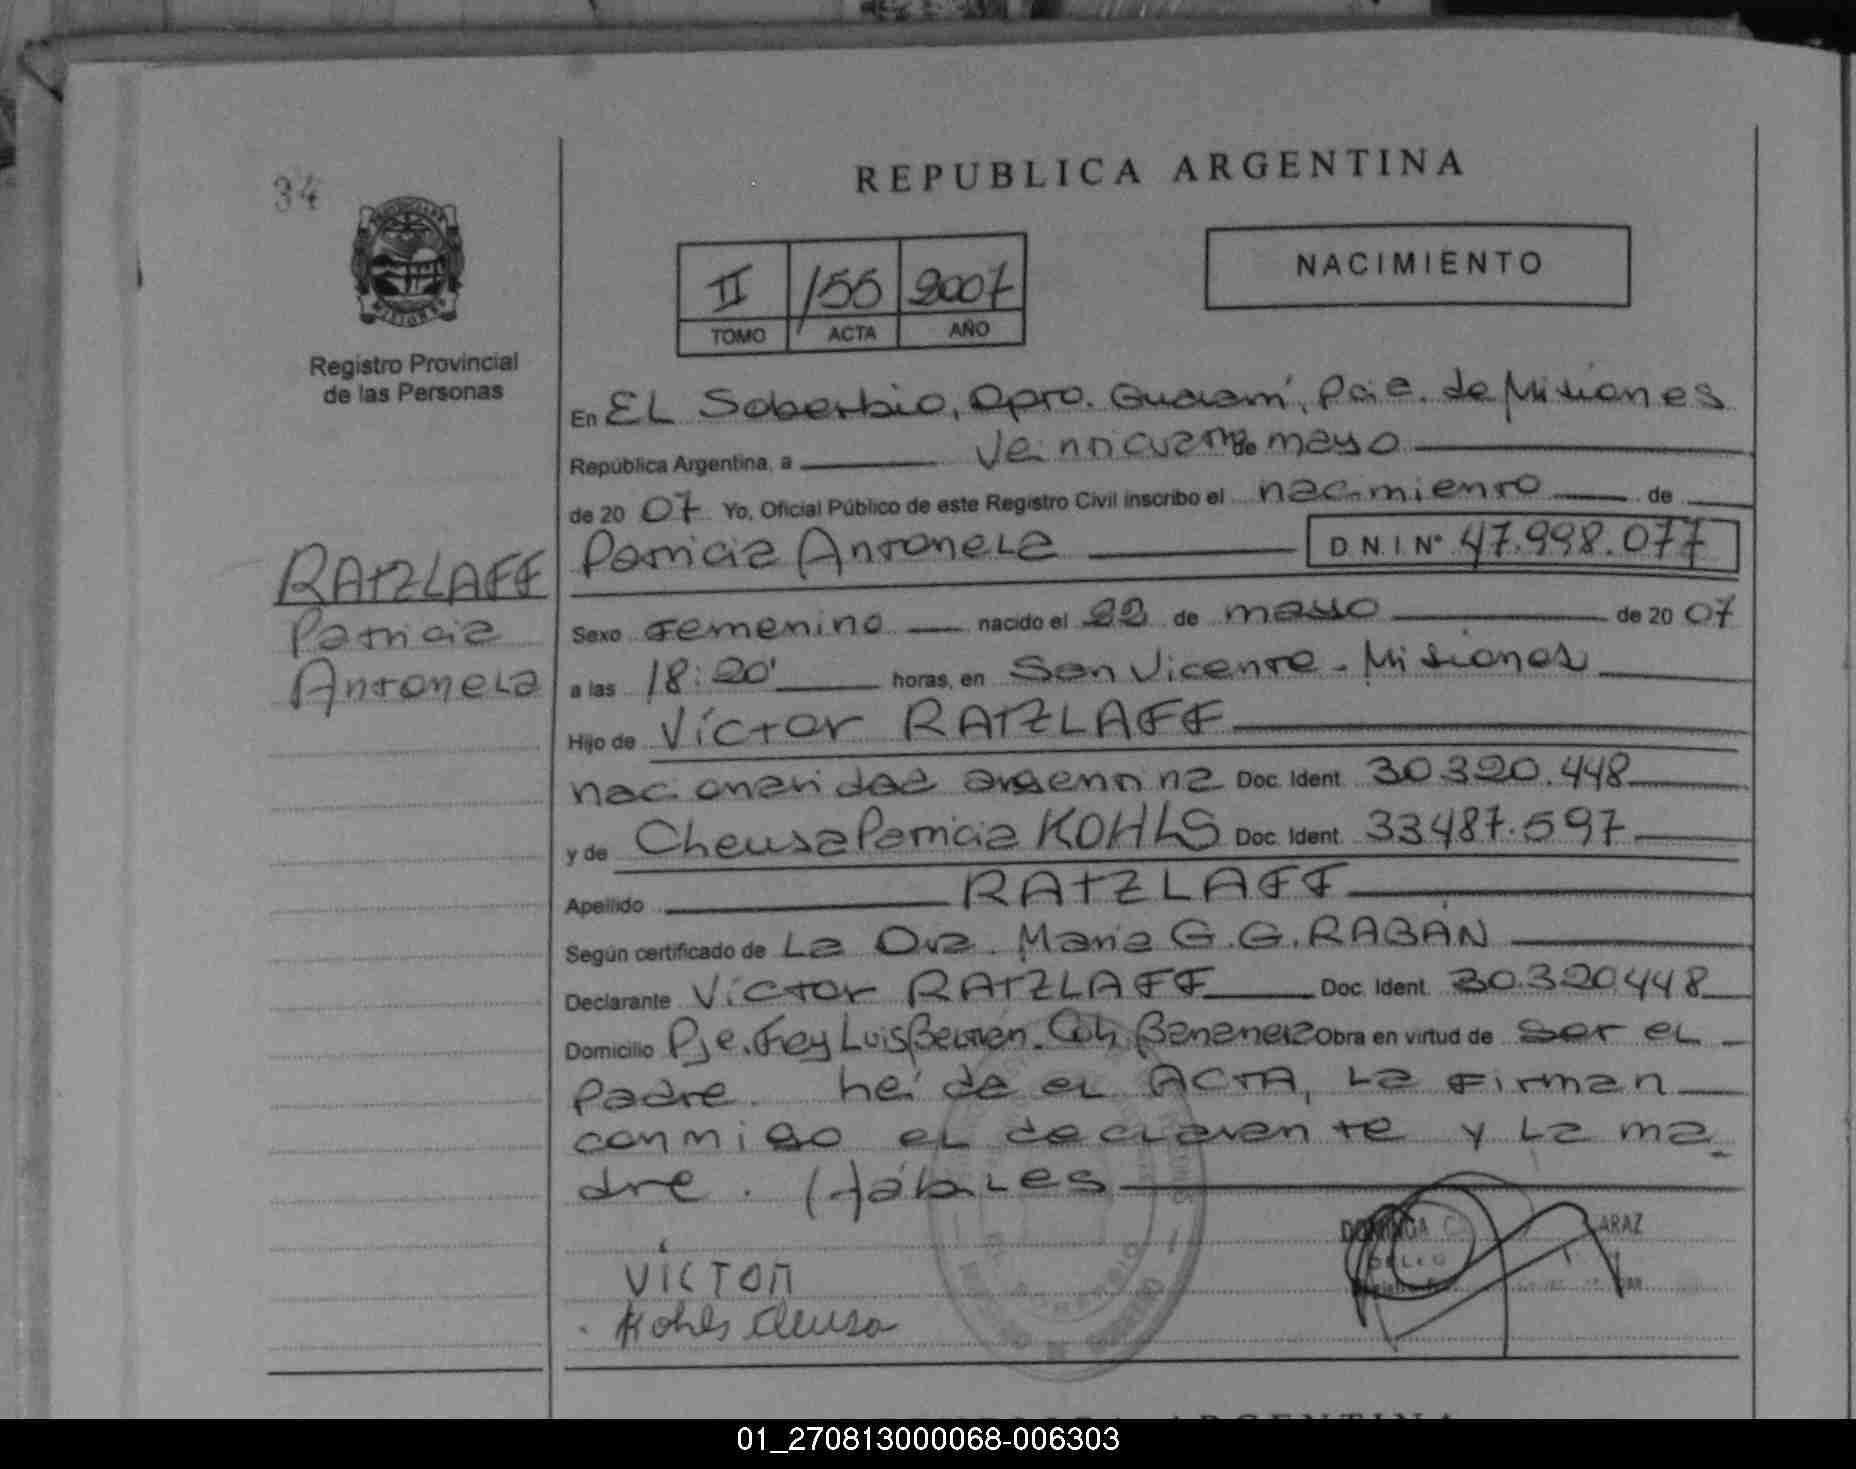 34
REPUBLICA ARGENTINA
NACIMIENTO
II /55 2007
TOMO ACTA AÑO
Registro Provincial
de las Personas
En EL Soberbio, Dpto. Guaraní, Pcia. de Misiones
República Argentina, a veinticuatro de mayo
de 20 07 Yo, Oficial Público de este Registro Civil inscribo el nacimiento de
Patricia Antonela D N. I. N° 47.998.077
RATZLAFF
Patricia
Antonela
Sexo Femenino nacido el 22 de mayo de 20 07
a las 18:20' horas, en San Vicente - Misiones
Hijo de Víctor RATZLAFF
nacionalidad argentina Doc. Ident. 30.320.448
y de Cheusa Patricia KOHLS Doc. Ident. 33.487.597
Apellido RATZLAFF
Según certificado de La Dra. María G. G. RABAN
Declarante Víctor RATZLAFF Doc. Ident. 30.320.448
Domicilio Pje. Fray Luis Beltrán. Bananera Obra en virtud de ser el
Padre. leída el ACTA, la firman
conmigo el declarante y la ma
dre. Hábiles
DOMINGA
VICTOR
Kohls Cleusa
01_270813000068-006303